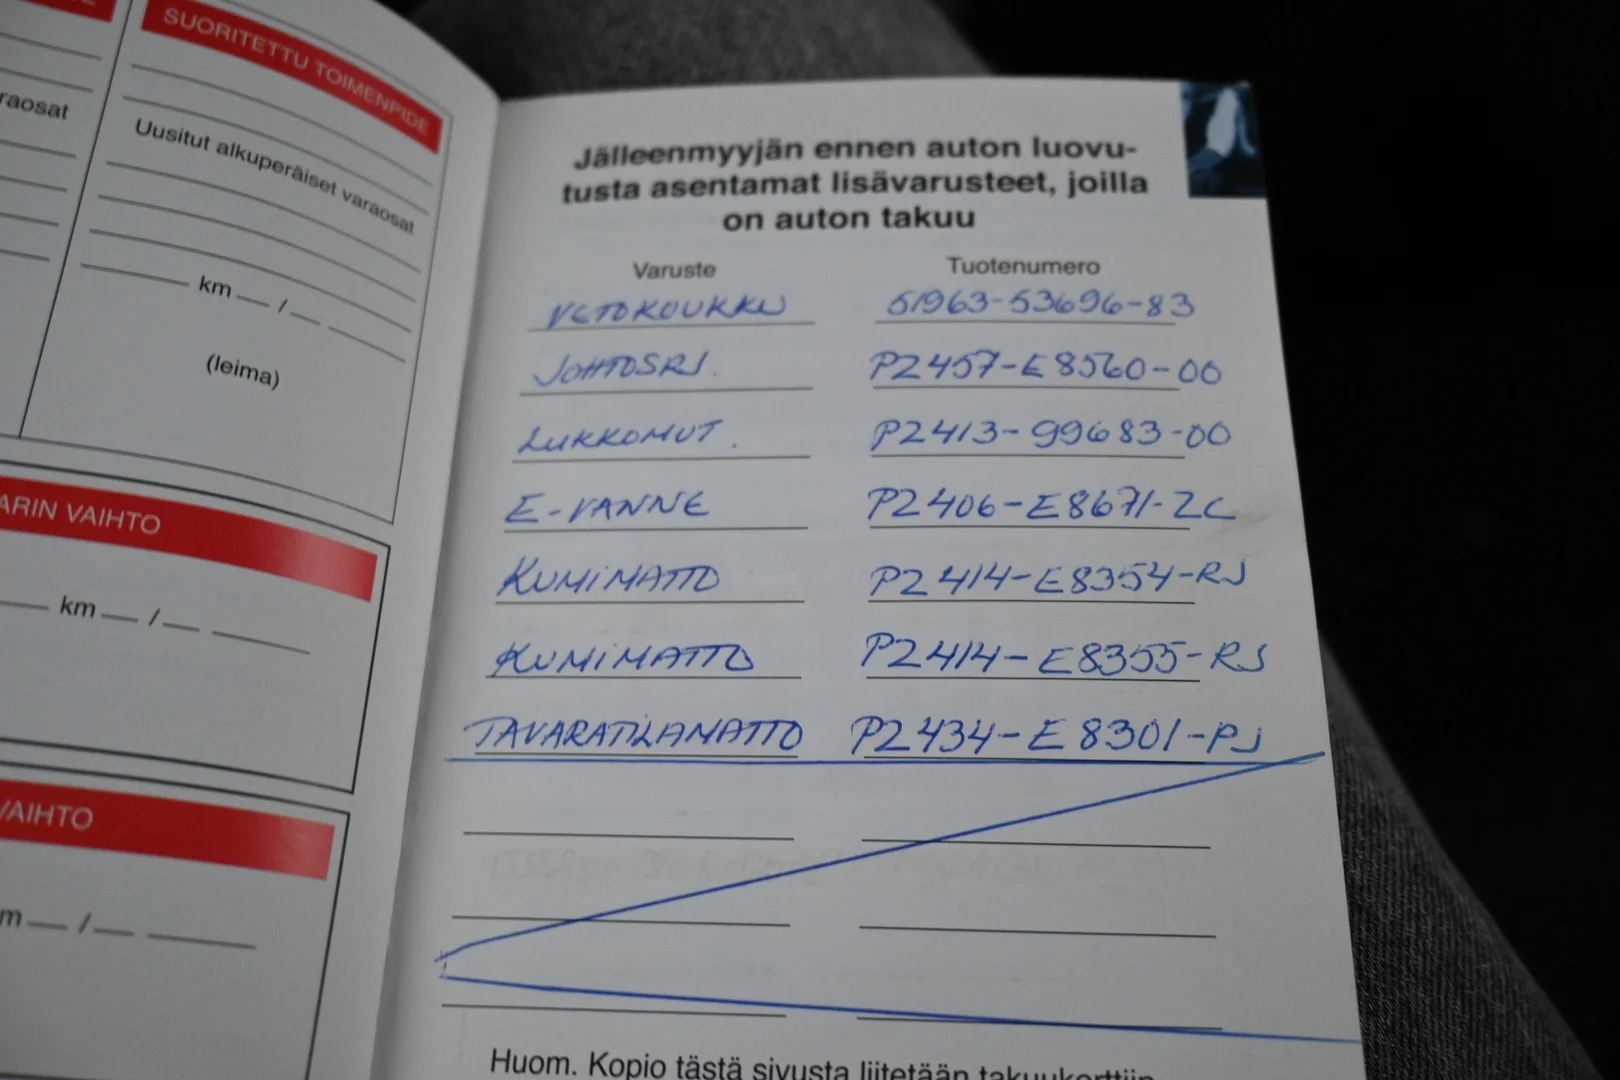 SUORITETTU TOIMENPIDE
raosat
Uusitut alkuperäiset varaosat
km / 
(leima)
ARIN VAIHTO
km / 
VAIHTO
m / 
Jälleenmyyjän ennen auton luovu-
tusta asentamat lisävarusteet, joilla
on auton takuu
Varuste Tuotenumero
VETOKOUKKU 51963-53696-83
JOHTOSRJ. PZ457-E8560-00
LUKKOMUT. PZ413-99683-00
E-VANNE PZ406-E8671-ZC
KUMIMATTO PZ414-E8354-RJ
KUMIMATTO PZ414-E8355-RJ
TAVARATILAMATTO PZ434-E8301-PJ
Huom. Kopio tästä sivusta liitetään takuukorttiin